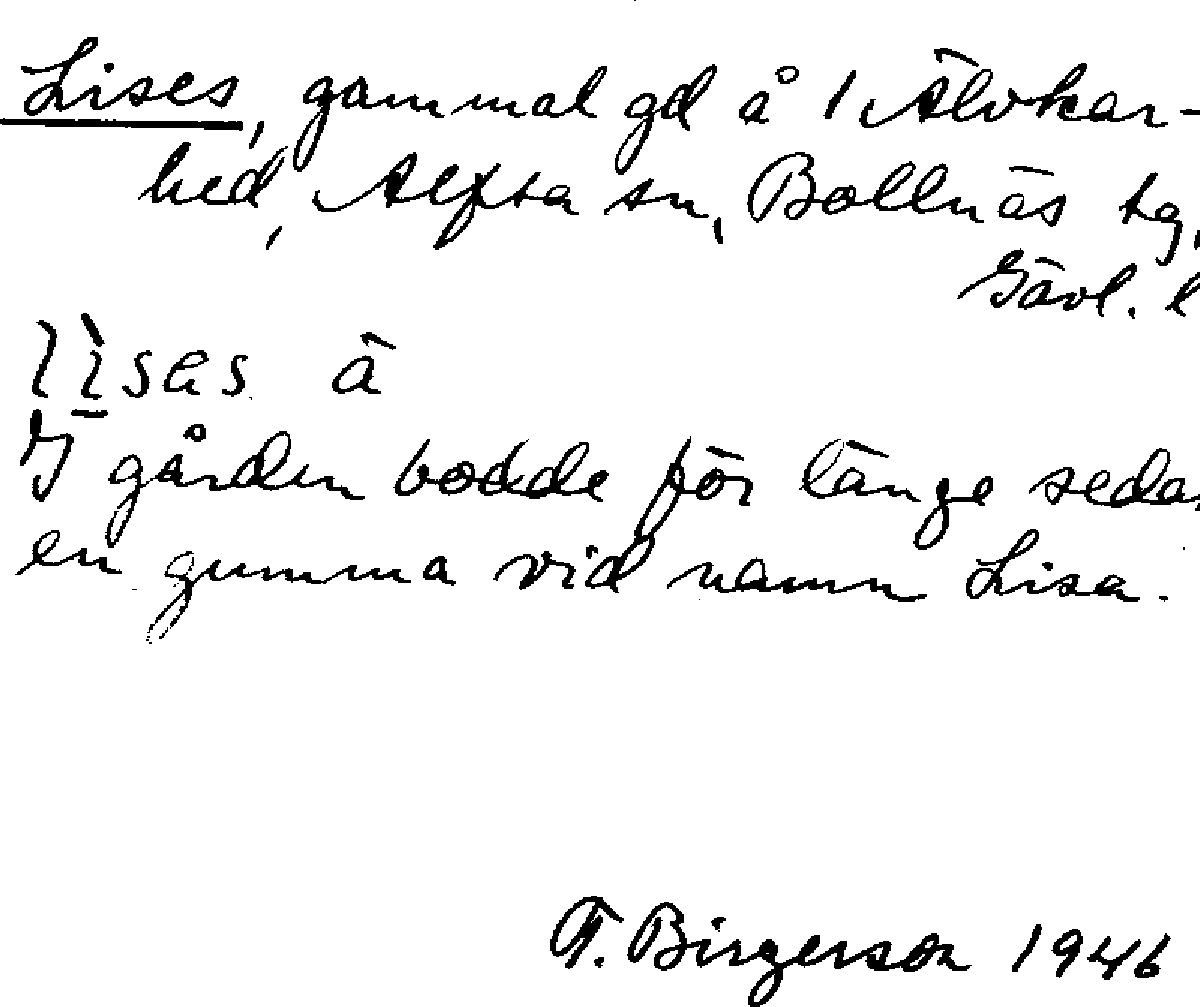 Lises, gammal gd å 1 Älvkar-
hed, Alfta sn, Bollnäs tg,
Gävl. l
lìsas ä
I gården bodde för länge sedan
en gumma vid namn Lisa.
F. Birgerson 1946